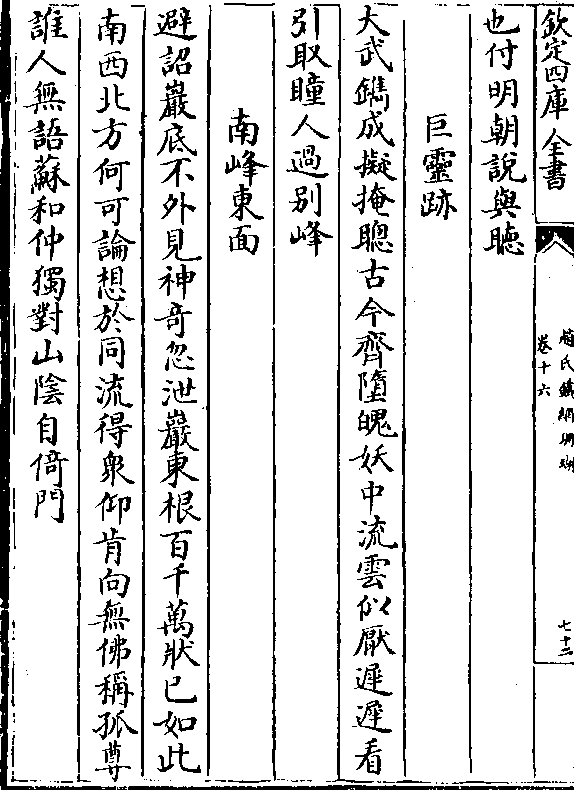 欽定四庫全書
趙氏鐵網珊瑚
卷十六
七十二
也付明朝說與聴
巨靈跡
大武鐫成擬掩聰古今齊墮魄妖中流雲似厭遲遲看
引取瞳人過別峰
南峰東面
避詔巖底不外見神奇忽泄巖東根百千萬狀已如此
南西北方何可論想於同流得衆仰肯向無佛稱孤尊
誰人無語蘇和仲獨對山陰自倚門